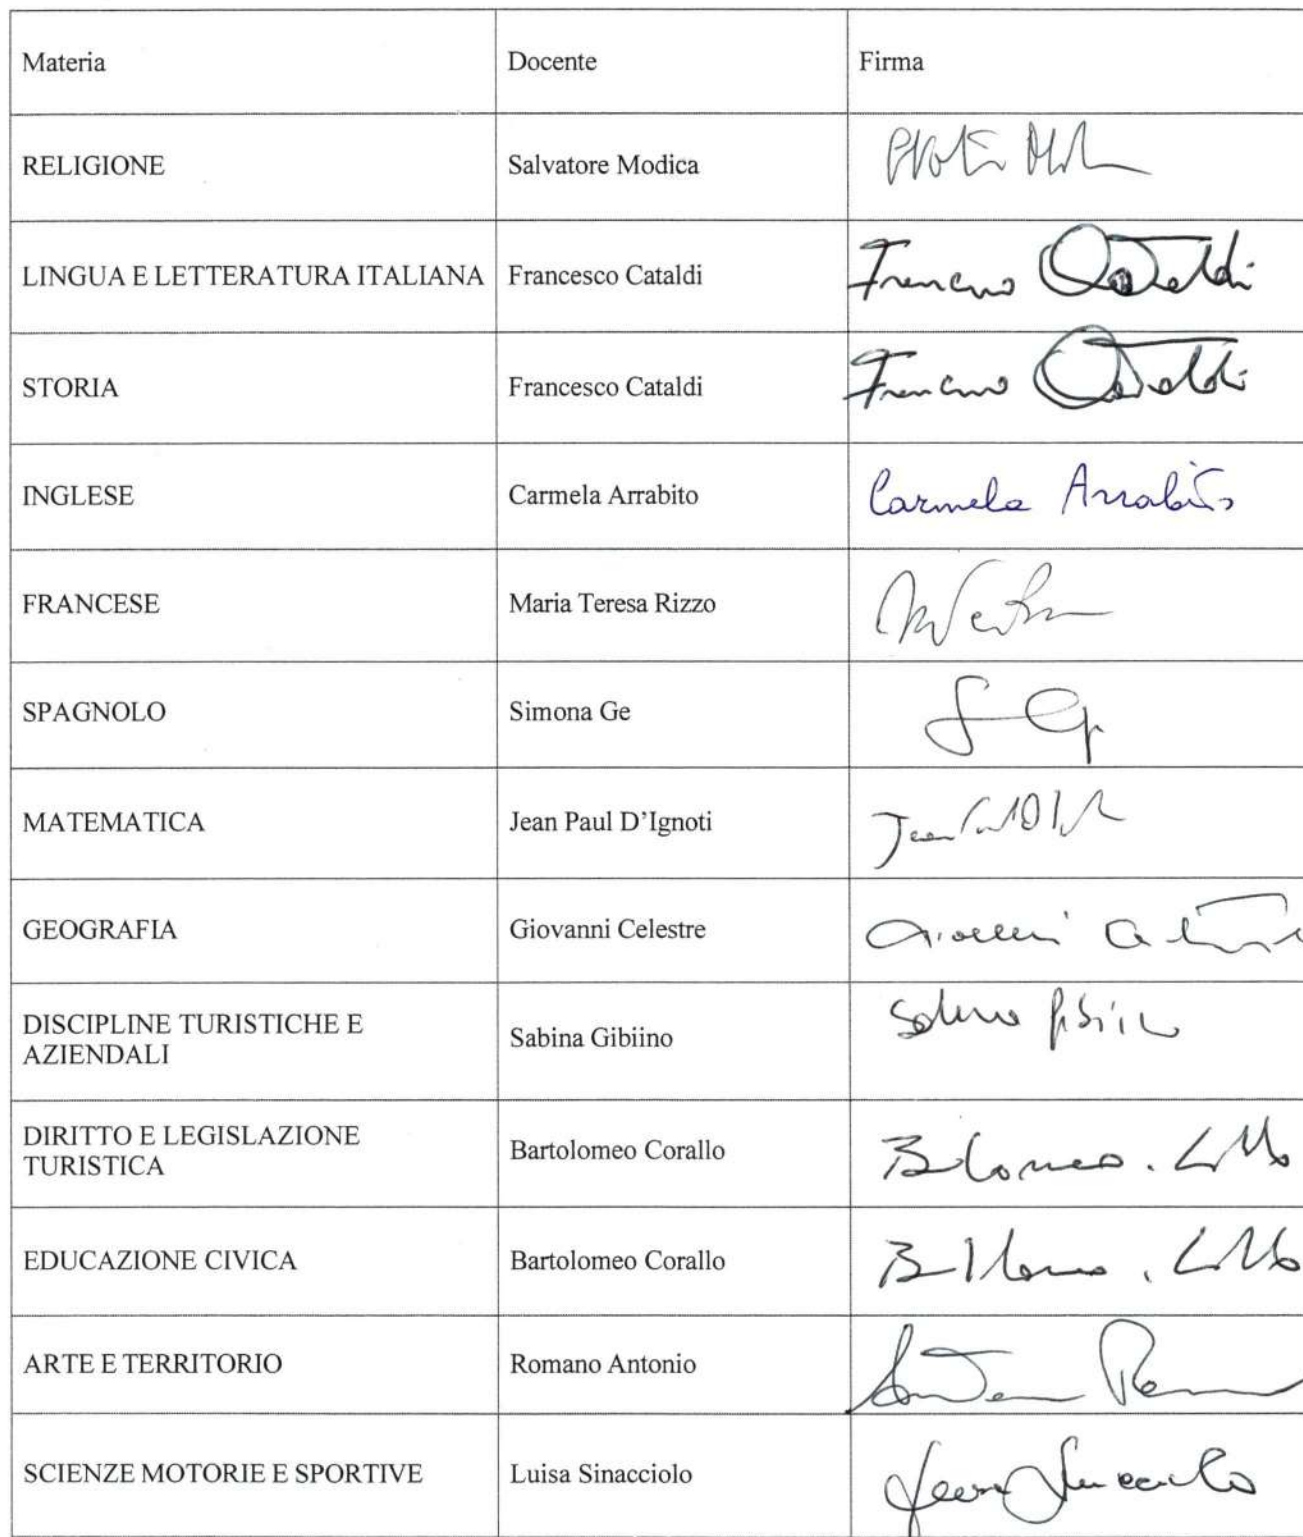 Materia Docente Firma
RELIGIONE Salvatore Modica
LINGUA E LETTERATURA ITALIANA Francesco Cataldi Francesco Cataldi
STORIA Francesco Cataldi Francesco Cataldi
INGLESE Carmela Arrabito Carmela Arrabito
FRANCESE Maria Teresa Rizzo
SPAGNOLO Simona Ge
MATEMATICA Jean Paul D'Ignoti
GEOGRAFIA Giovanni Celestre
DISCIPLINE TURISTICHE E
AZIENDALI
Sabina Gibiino
DIRITTO E LEGISLAZIONE
TURISTICA
Bartolomeo Corallo
EDUCAZIONE CIVICA Bartolomeo Corallo
ARTE E TERRITORIO Romano Antonio
SCIENZE MOTORIE E SPORTIVE Luisa Sinacciolo